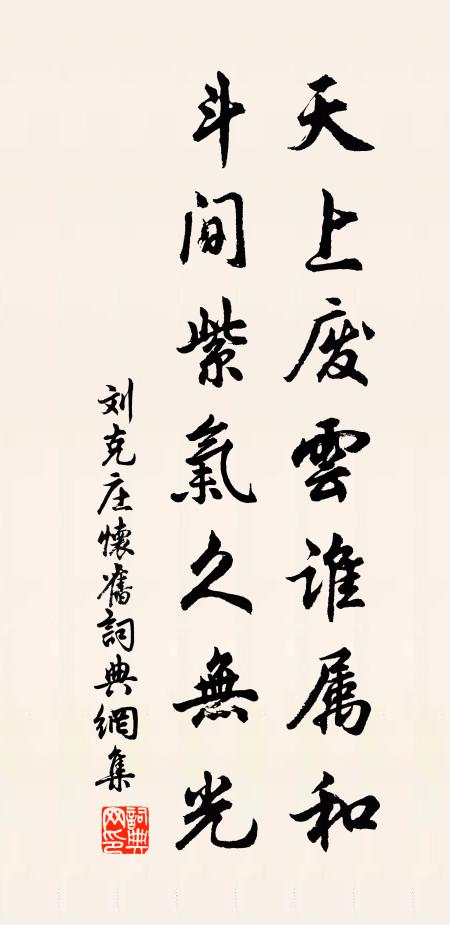 天上废雲谁属和
斗间紫氣久無光
刘克庄懷舊詞典網集
詞典网印